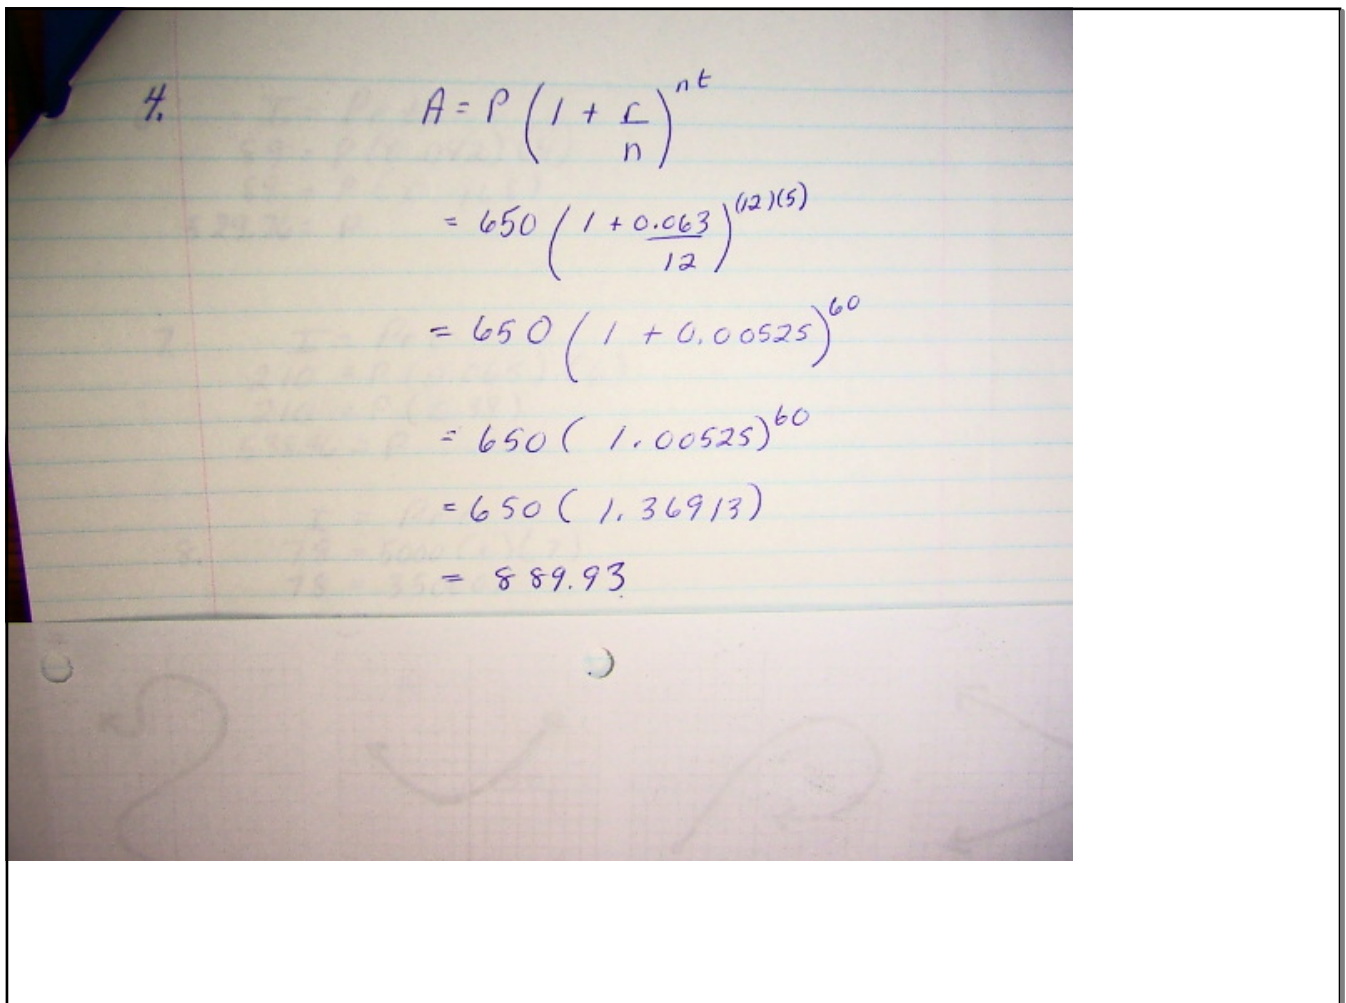 4. A = P (1 + r/n)^nt
= 650 (1 + 0.063/12)^(12)(5)
= 650 (1 + 0.00525)^60
= 650 ( 1.00525)^60
= 650 ( 1.36913)
= 889.93